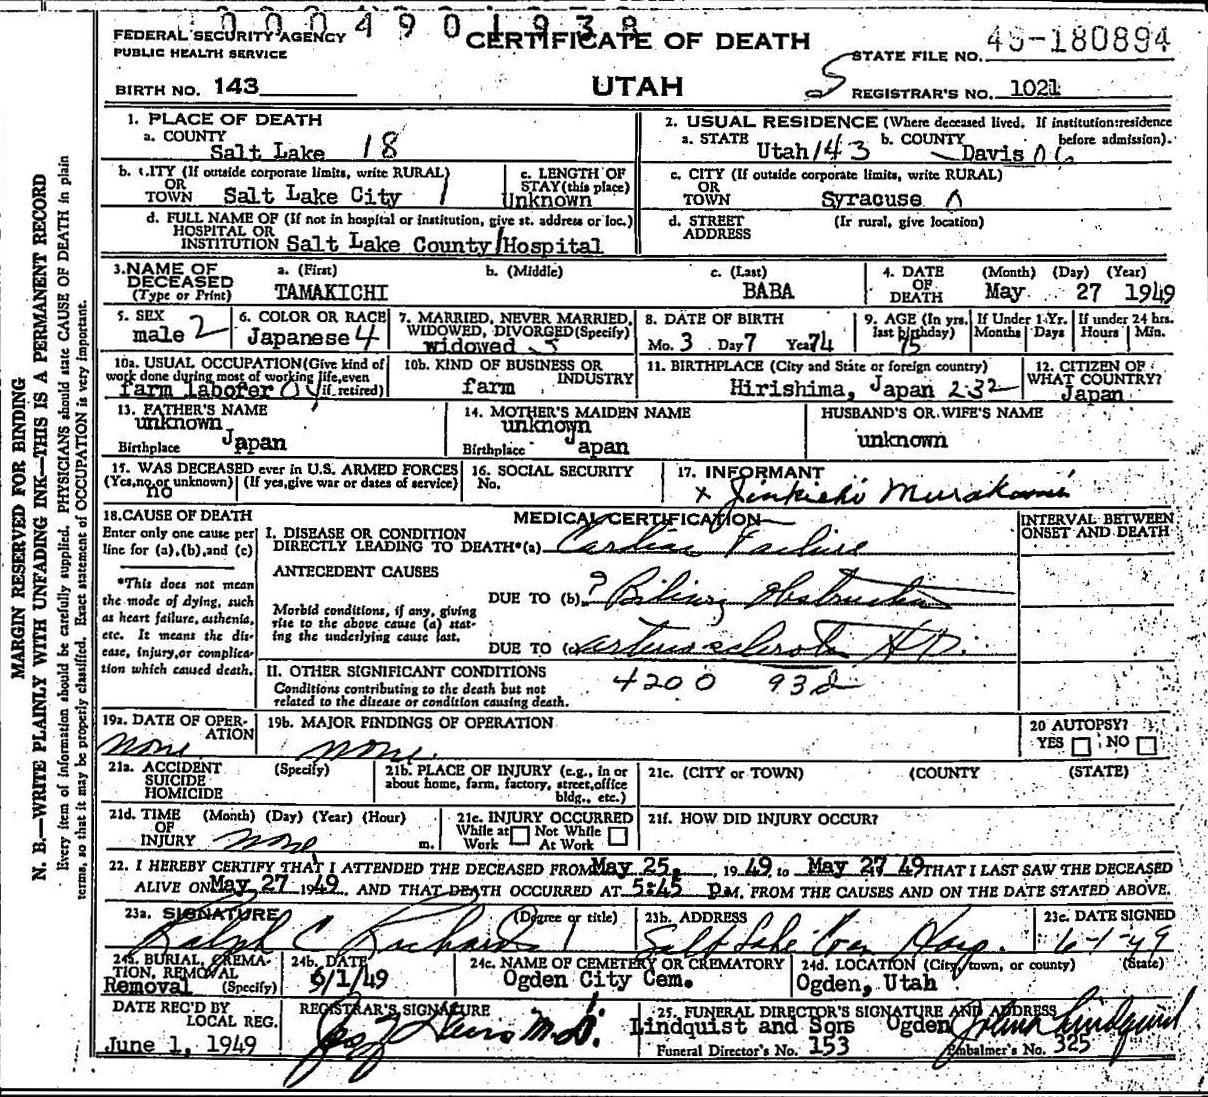 0004901938
FEDERAL SECURITY AGENCY
PUBLIC HEALTH SERVICE
CERTIFICATE OF DEATH
STATE FILE NO. 49-180894
BIRTH NO. 143
UTAH
REGISTRAR'S NO. 1021
1. PLACE OF DEATH
a. COUNTY
Salt Lake 18
2. USUAL RESIDENCE (Where deceased lived. If institution:residence before admission).
a. STATE b. COUNTY
Utah/43 Davis 06
b. CITY (If outside corporate limits, write RURAL)
OR
TOWN Salt Lake City 1
c. LENGTH OF
STAY (this place)
Unknown
c. CITY (If outside corporate limits, write RURAL)
OR
TOWN Syracuse 0
d. FULL NAME OF (If not in hospital or institution, give st. address or loc.)
HOSPITAL OR
INSTITUTION Salt Lake County Hospital
d. STREET (If rural, give location)
ADDRESS
3. NAME OF
DECEASED
(Type or Print)
a. (First) b. (Middle) c. (Last)
TAMAKICHI BABA
4. DATE (Month) (Day) (Year)
OF
DEATH May 27 1949
5. SEX
male 2
6. COLOR OR RACE
Japanese 4
7. MARRIED, NEVER MARRIED,
WIDOWED, DIVORCED(Specify)
widowed
8. DATE OF BIRTH
Mo. 3 Day 7 Yea 74
9. AGE (In yrs.
last birthday)
75
If Under 1 Yr.
Months Days
If under 24 hrs.
Hours Min.
10a. USUAL OCCUPATION(Give kind of
work done during most of working life, even
if retired)
farm laborer
10b. KIND OF BUSINESS OR
INDUSTRY
farm
11. BIRTHPLACE (City and State or foreign country)
Hirishima, Japan 232
12. CITIZEN OF
WHAT COUNTRY?
Japan
13. FATHER'S NAME
unknown
Birthplace Japan
14. MOTHER'S MAIDEN NAME
unknown
Birthplace Japan
HUSBAND'S OR WIFE'S NAME
unknown
15. WAS DECEASED ever in U.S. ARMED FORCES
(Yes,no,or unknown) (If yes,give war or dates of service)
no
16. SOCIAL SECURITY
No.
17. INFORMANT
x Jinkichi Murakami
18. CAUSE OF DEATH
Enter only one cause per
line for (a),(b),and (c)
*This does not mean
the mode of dying, such
as heart failure, asthenia,
etc. It means the dis-
ease, injury,or complica-
tion which caused death.
MEDICAL CERTIFICATION
INTERVAL BETWEEN
ONSET AND DEATH
I. DISEASE OR CONDITION
DIRECTLY LEADING TO DEATH*(a) Cardiac Failure
ANTECEDENT CAUSES
DUE TO (b) ? Biliary obstruction
Morbid conditions, if any, giving
rise to the above cause (a) stat-
ing the underlying cause last.
DUE TO (c) arteriosclerotic H.D.
II. OTHER SIGNIFICANT CONDITIONS
Conditions contributing to the death but not
related to the disease or condition causing death.
4200 93d
19a. DATE OF OPER-
ATION
none
19b. MAJOR FINDINGS OF OPERATION
none.
20 AUTOPSY?
YES NO
21a. ACCIDENT (Specify)
SUICIDE
HOMICIDE
21b. PLACE OF INJURY (e.g., in or
about home, farm, factory, street,office
bldg., etc.)
21c. (CITY or TOWN) (COUNTY (STATE)
21d. TIME (Month) (Day) (Year) (Hour)
OF
INJURY none m.
21e. INJURY OCCURRED
While at Not While
Work At Work
21f. HOW DID INJURY OCCUR?
22. I HEREBY CERTIFY THAT I ATTENDED THE DECEASED FROM May 25, 1949 to May 27 49 THAT I LAST SAW THE DECEASED
ALIVE ON May 27 1949 AND THAT DEATH OCCURRED AT 5:45 p.M. FROM THE CAUSES AND ON THE DATE STATED ABOVE.
23a. SIGNATURE (Degree or title)
Ralph C Richards
23b. ADDRESS
Salt Lake Coun Hosp.
23c. DATE SIGNED
6-1-49
24a. BURIAL, CREMA-
TION, REMOVAL
(Specify)
Removal
24b. DATE
6/1/49
24c. NAME OF CEMETERY OR CREMATORY
Ogden City Cem.
24d. LOCATION (City, town, or county) (State)
Ogden, Utah
DATE REC'D BY
LOCAL REG.
June 1, 1949
REGISTRAR'S SIGNATURE
M.D.
25. FUNERAL DIRECTOR'S SIGNATURE AND ADDRESS
Lindquist and Sons Ogden Lindquist
Funeral Director's No. 153 Embalmer's No. 325
MARGIN RESERVED FOR BINDING
N. B.—WRITE PLAINLY WITH UNFADING INK—THIS IS A PERMANENT RECORD
Every item of information should be carefully supplied. PHYSICIANS should state CAUSE OF DEATH in plain
terms, so that it may be properly classified. Exact statement of OCCUPATION is very important.